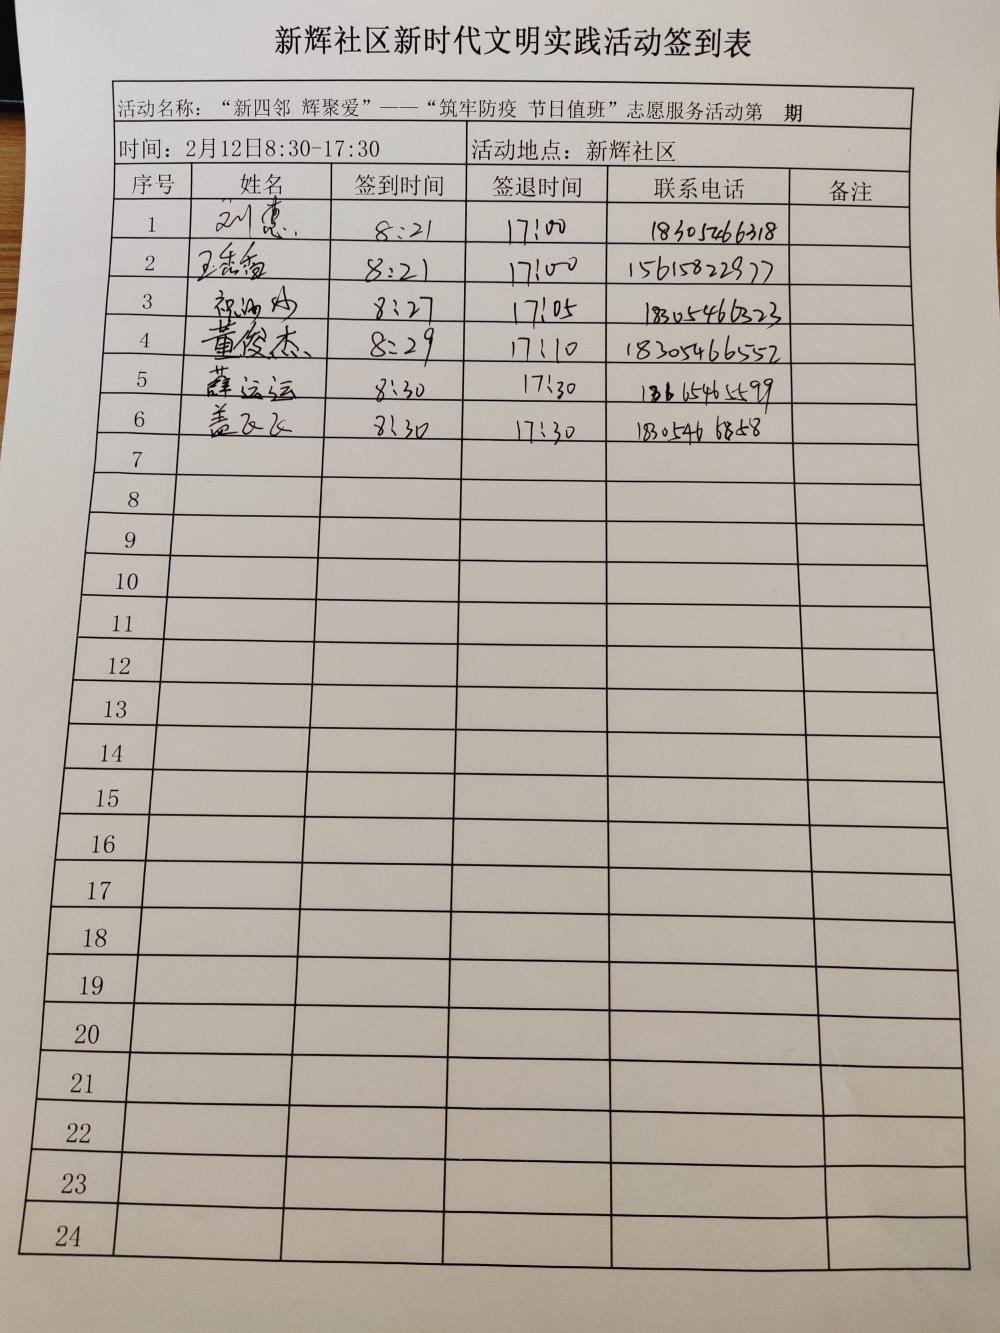 新辉社区新时代文明实践活动签到表
活动名称：“新四邻 辉聚爱”——“筑牢防疫 节日值班”志愿服务活动第 期
时间：2月12日8:30-17:30 活动地点：新辉社区
序号 姓名 签到时间 签退时间 联系电话 备注
1 刘惠 8:21 17:00 18305466318
2 王香香 8:21 17:00 15615822977
3 8:27 17:05 18305466323
4 董俊杰 8:29 17:10 18305466552
5 薛运运 8:30 17:30
6 盖飞飞 8:30 17:30
7
8
9
10
11
12
13
14
15
16
17
18
19
20
21
22
23
24